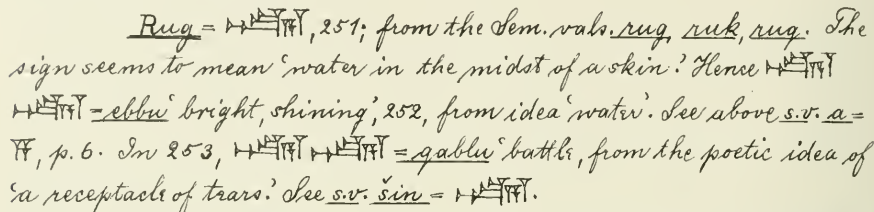 Rug = 𒋢𒀀, 251; from the Sem. vals. rug, ruk, ruq. The
sign seems to mean 'water in the midst of a skin.' Hence
= ebbu 'bright, shining', 252, from idea 'water'. See above s.v. a =
𒀀, p. 6. In 253, = qablu 'battle, from the poetic idea of
'a receptacle of tears.' See s.v. šin =